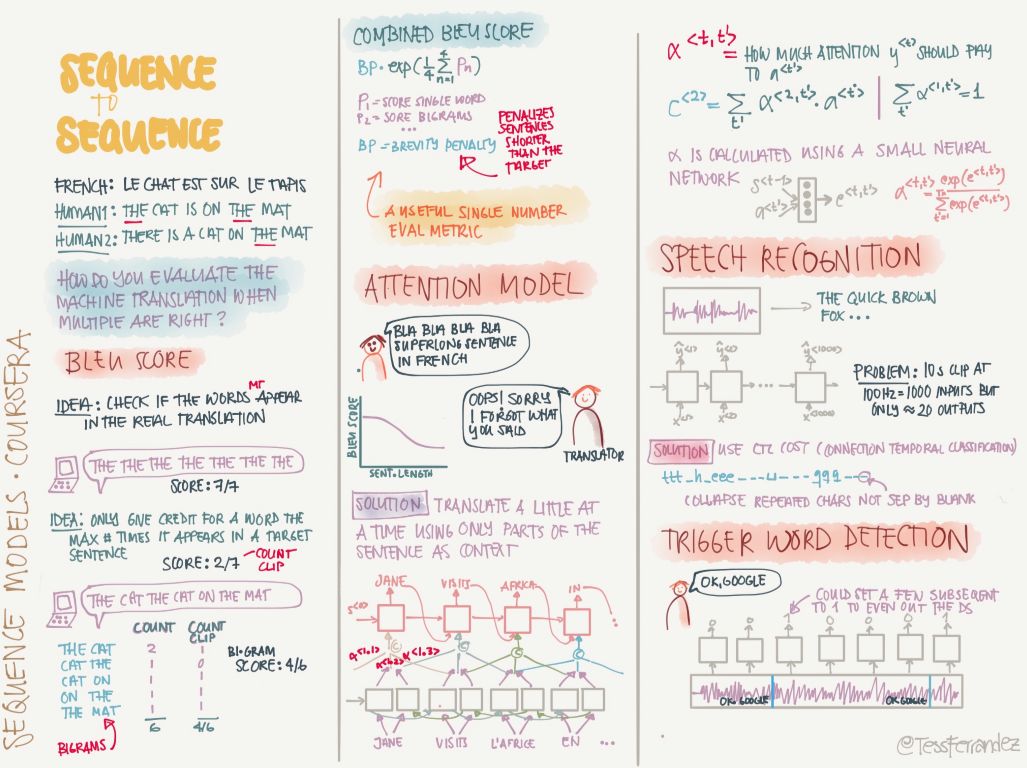 SEQUENCE MODELS · COURSERA
SEQUENCE
TO
SEQUENCE
FRENCH: LE CHAT EST SUR LE TAPIS
HUMAN1: THE CAT IS ON THE MAT
HUMAN2: THERE IS A CAT ON THE MAT
HOW DO YOU EVALUATE THE
MACHINE TRANSLATION WHEN
MULTIPLE ARE RIGHT?
BLEU SCORE
MT
IDEA: CHECK IF THE WORDS APPEAR
IN THE REAL TRANSLATION
THE THE THE THE THE THE THE
SCORE: 7/7
IDEA: ONLY GIVE CREDIT FOR A WORD THE
MAX # TIMES IT APPEARS IN A TARGET
SENTENCE
SCORE: 2/7
COUNT
CLIP
THE CAT THE CAT ON THE MAT
COUNT COUNT
CLIP
THE CAT 2 1
CAT THE 1 0
CAT ON 1 1
ON THE 1 1
THE MAT 1 1
6 4/6
BIGRAM
SCORE: 4/6
BIGRAMS
COMBINED BLEU SCORE
BP · exp(1/4 Σ Pn)
4
n=1
P1 = SCORE SINGLE WORD
P2 = SORE BIGRAMS
...
BP = BREVITY PENALTY
PENALIZES
SENTENCES
SHORTER
THAN THE
TARGET
A USEFUL SINGLE NUMBER
EVAL METRIC
ATTENTION MODEL
BLA BLA BLA BLA
SUPERLONG SENTENCE
IN FRENCH
OOPS! SORRY
I FORGOT WHAT
YOU SAID
TRANSLATOR
BLEU SCORE
SENT. LENGTH
SOLUTION TRANSLATE A LITTLE AT
A TIME USING ONLY PARTS OF THE
SENTENCE AS CONTEXT
JANE VISITS AFRICA IN ...
s<0>
C C C C
α<1,1> α<1,2> α<1,3>
JANE VISITS L'AFRICE EN ...
α<t,t'> = HOW MUCH ATTENTION y<t> SHOULD PAY
TO a<t'>
C<2> = Σ α<2,t'> · a<t'> | Σ α<1,t'> = 1
t' t'
α IS CALCULATED USING A SMALL NEURAL
NETWORK
s<t-1>
a<t'>
e<t,t'>
α<t,t'> = exp(e<t,t'>)
Σ exp(e<t,t'>)
t'=1
SPEECH RECOGNITION
THE QUICK BROWN
FOX ...
ŷ<1> ŷ<2> ŷ<1000>
...
x<1> x<2> x<1000>
PROBLEM: 10s CLIP AT
100Hz = 1000 INPUTS BUT
ONLY ≈ 20 OUTPUTS
SOLUTION USE CTC COST (CONNECTION TEMPORAL CLASSIFICATION)
ttt_h_eee---⊔---qqq--
COLLAPSE REPEATED CHARS NOT SEP BY BLANK
TRIGGER WORD DETECTION
OK, GOOGLE
COULD SET A FEW SUBSEQENT
TO 1 TO EVEN OUT THE DS
0 0 1 0 0 0 1
OK GOOGLE OK GOOGLE
@TessFerrandez